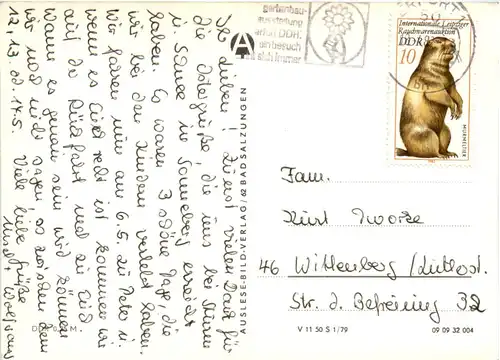 Ihr Lieben! Zuerst vielen Dank für
die Ostergrüße, die uns bei Sturm
u. Schnee in Sonneberg erreicht
haben. Es waren 3 schöne Tage, die
wir bei den Kindern verlebt haben.
Wir fahren nun am 6.5. zu Peter u.
wenn es Euch recht ist kommen wir
auf der Rückfahrt und zu Euch.
Wann es genau sein wird können
wir noch nicht sagen, so zwischen dem
12., 13. od 14.5. Viele liebe Grüße
Wolfgang
gartenbau-
ausstellung
erfurt DDR.
ein besuch
sich immer
Internationale Leipziger
Rauchwarenauktion
DDR
10
MURMELTIER
AUSLESE-BILD-VERLAG/62 BAD SALZUNGEN
Fam.
Kurt
46 Wittenberg/Lutherst.
Str. d. Befreiung 32
V 11 50 S 1/79
09 09 32 004